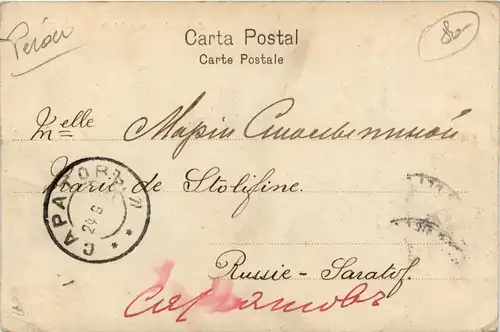 Perou
80-
Carta Postal
Carte Postale
Melle
Маріи Столыпиной
Marie de Stolipine.
САРАТОВЪ
24 8
Russie - Saratof.
Саратовъ